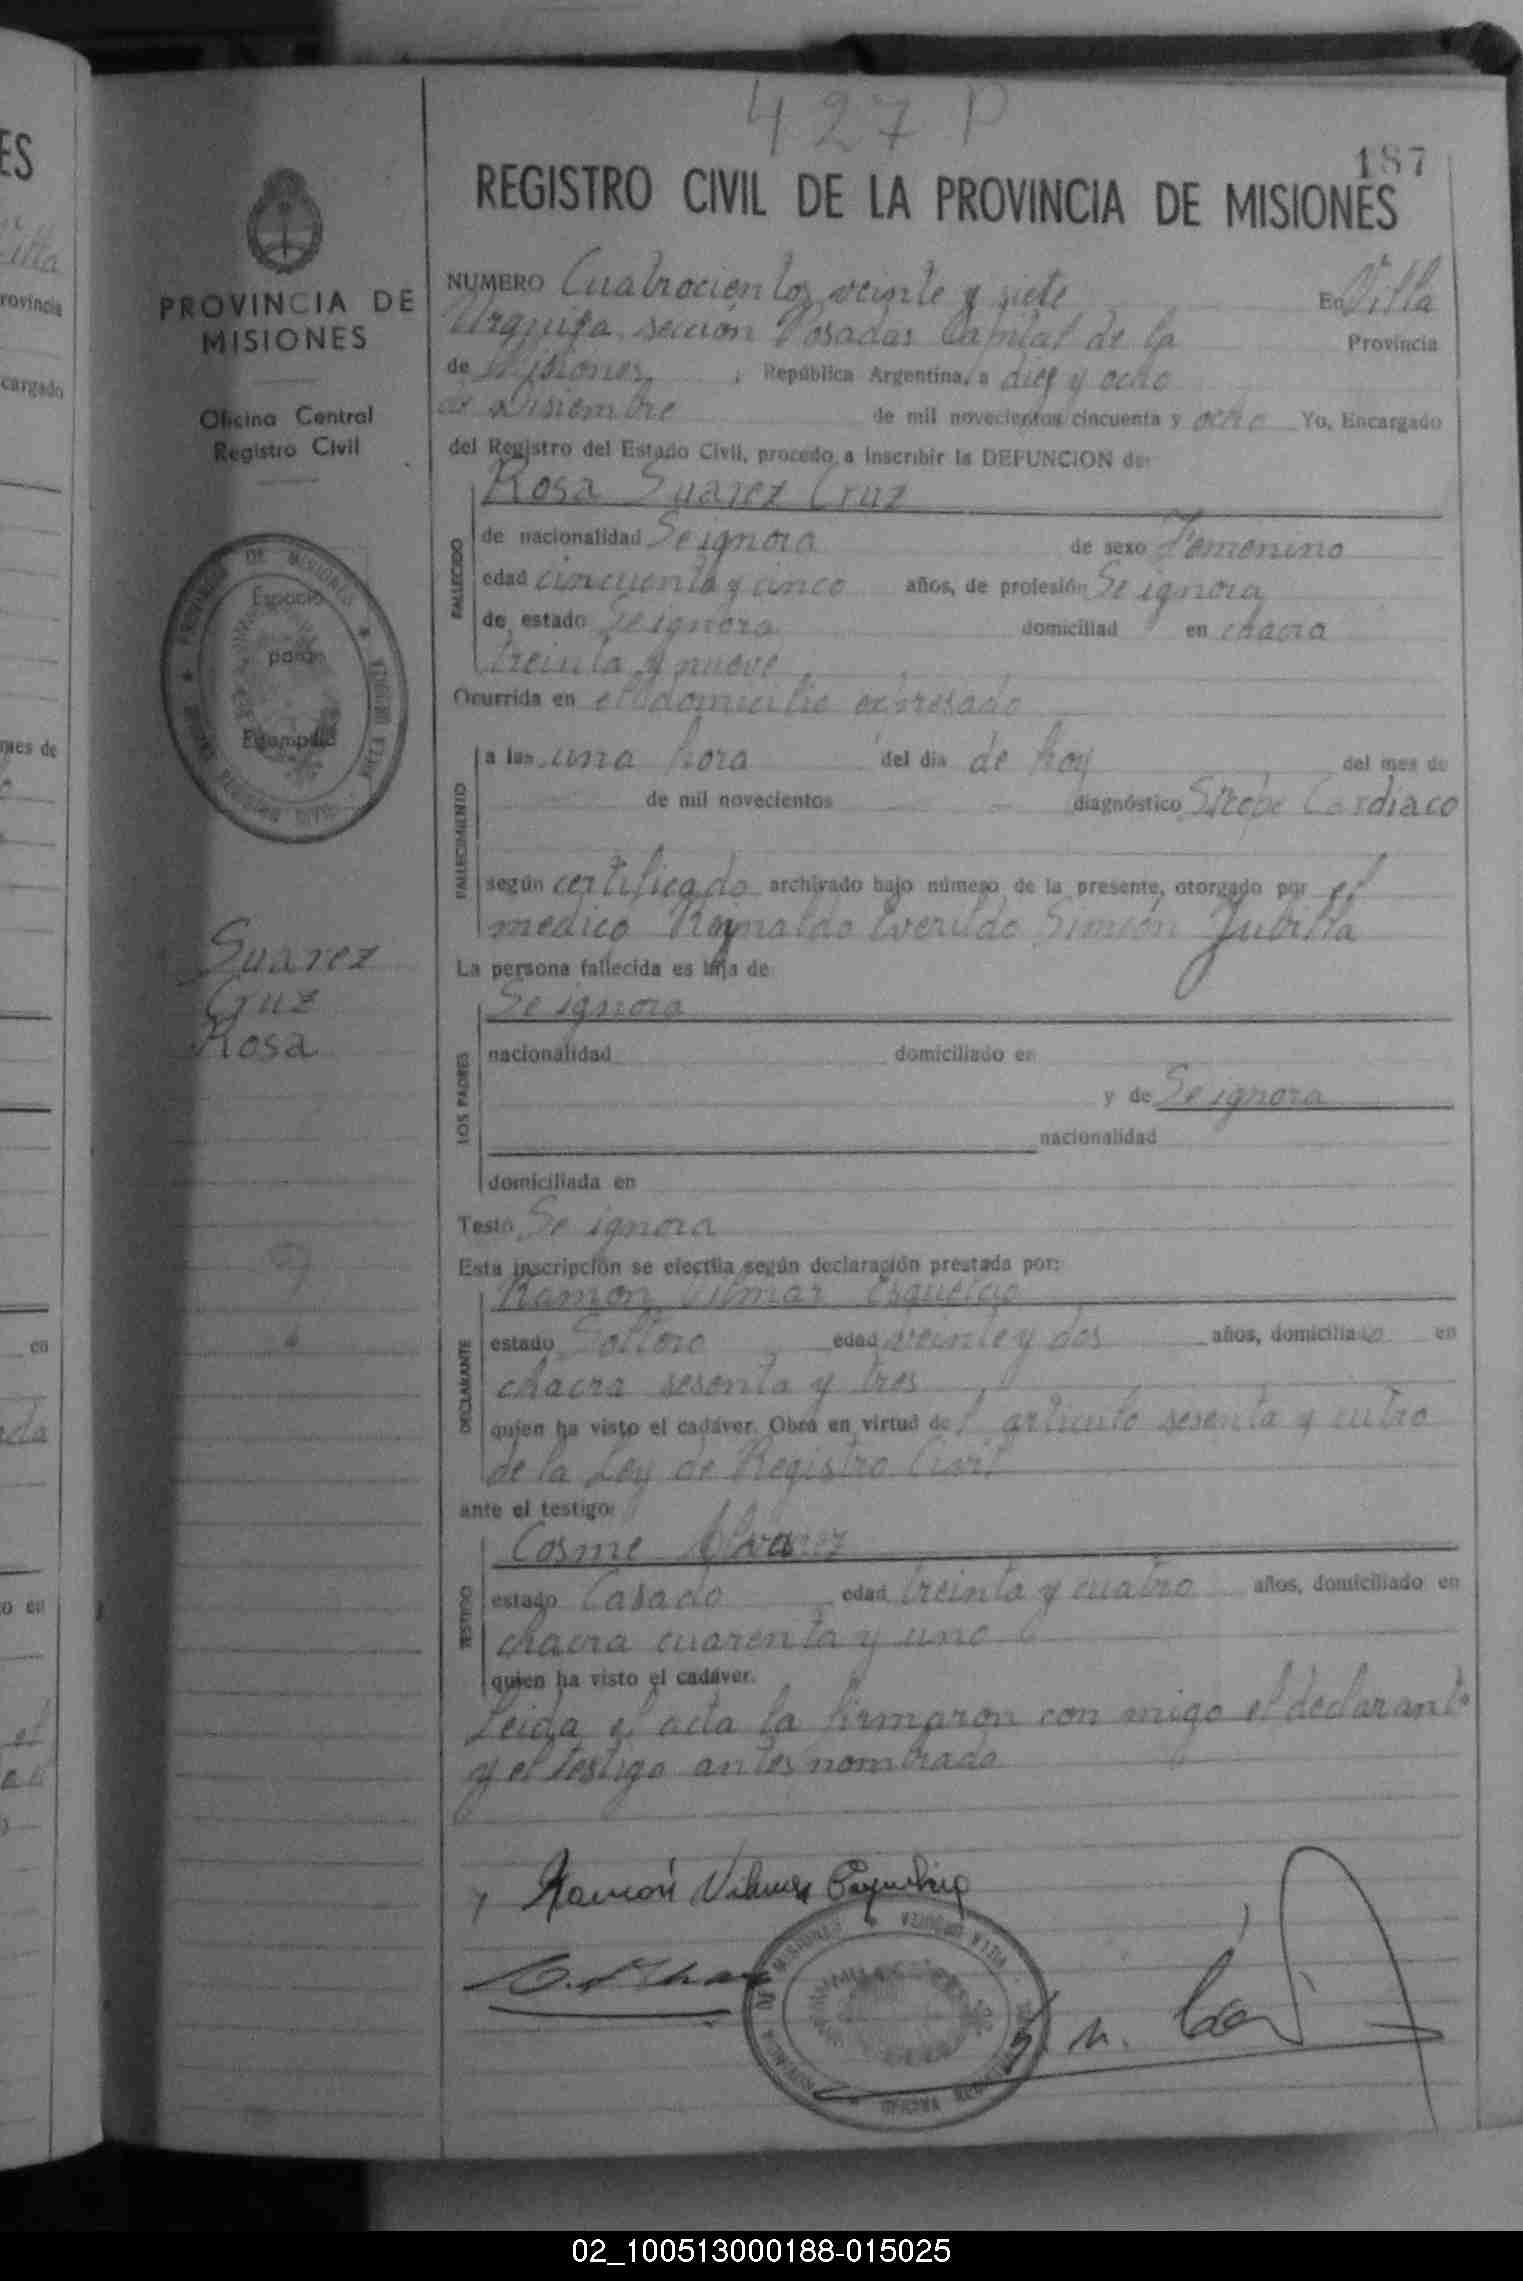 427 P
187
REGISTRO CIVIL DE LA PROVINCIA DE MISIONES
PROVINCIA DE
MISIONES
Oficina Central
Registro Civil
Espacio
para
Estampilla
Suarez
Cruz
Rosa
NUMERO Cuatrocientos veinte y siete En Villa
Urquiza, sección Posadas Capital de la Provincia
de Misiones, República Argentina, a diez y ocho
de Disiembre de mil novecientos cincuenta y ocho Yo, Encargado
del Registro del Estado Civil, procedo a inscribir la DEFUNCION de:
Rosa Suarez Cruz
FALLECIDO
de nacionalidad Se ignora de sexo Femenino
edad cincuenta y cinco años, de profesión Se ignora
de estado Se ignora domiciliad en chacra
treinta y nueve
Ocurrida en el domicilio expresado
FALLECIMIENTO
a las una hora del dia de hoy del mes de
de mil novecientos diagnóstico Cardiaco
según certificado archivado bajo número de la presente, otorgado por el
medico Reynaldo Everildo Simeón
La persona fallecida es hija de
Se ignora
LOS PADRES
nacionalidad domiciliado en
y de Se ignora
nacionalidad
domiciliada en
Testó Se ignora
Esta inscripción se efectúa según declaración prestada por:
Ramon Vilmar
DECLARANTE
estado Soltero edad veinte y dos años, domiciliado en
chacra sesenta y tres
quien ha visto el cadáver. Obra en virtud del artículo sesenta y
de la Ley de Registro Civil
ante el testigo:
Cosme Alvarez
TESTIGO
estado Casado edad treinta y cuatro años, domiciliado en
chacra cuarenta y uno
quien ha visto el cadáver.
Leida el acta la firmaron con migo el declarante
y el testigo antes nombrado
Ramón Vilmar
02_100513000188-015025